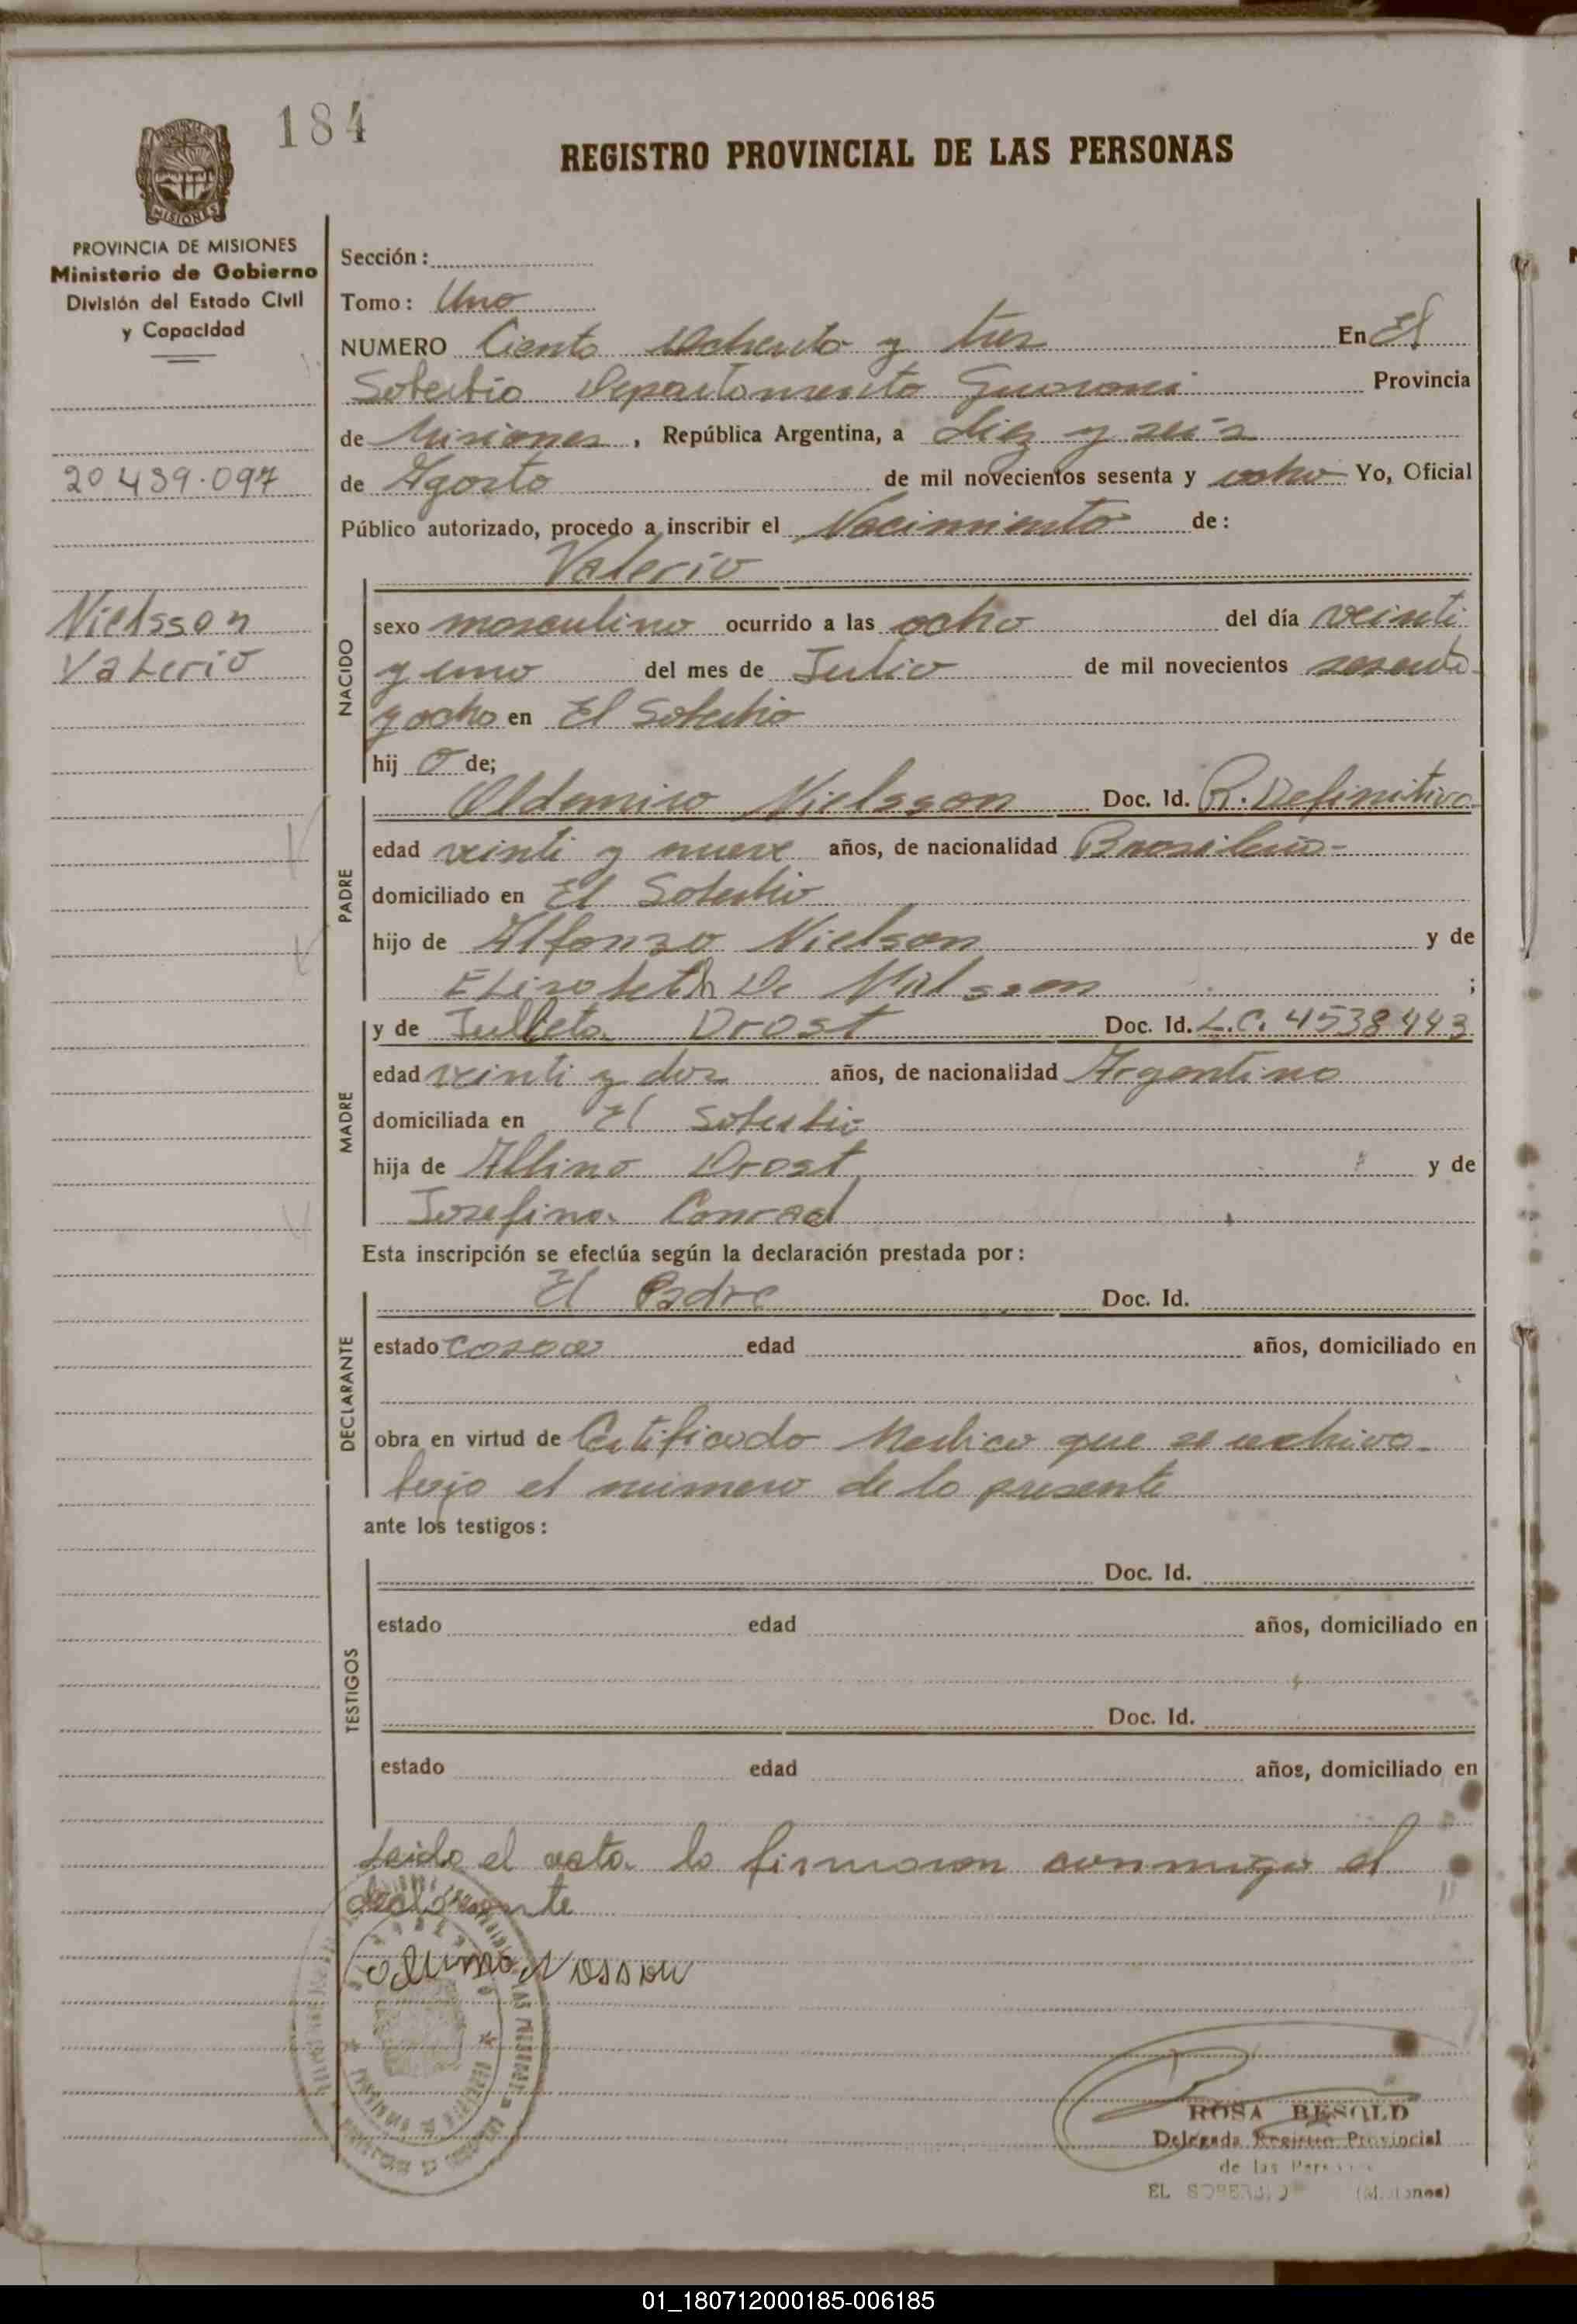 184
REGISTRO PROVINCIAL DE LAS PERSONAS
MISIONES
PROVINCIA DE MISIONES
Ministerio de Gobierno
División del Estado Civil
y Capacidad
20 439.097
Nielsson
Valerio
Sección:
Tomo: Uno
NUMERO Ciento Ochenta y tres En El
Soberbio Departamento Guarani Provincia
de Misiones, República Argentina, a diez y seis
de Agosto de mil novecientos sesenta y ocho Yo, Oficial
Público autorizado, procedo a inscribir el Nacimiento de:
Valerio
NACIDO
sexo masculino ocurrido a las ocho del día veinti
y uno del mes de Julio de mil novecientos sesenta
y ocho en El Soberbio
hij o de;
PADRE
Nielsson Doc. Id. R. Definitivo
edad veinti y nueve años, de nacionalidad Brasileño-
domiciliado en El Soberbio
hijo de Alfonzo Nielson y de
Elizabeth De ;
MADRE
y de Julieta Drost Doc. Id. L.C. 4538443
edad veinti y dos años, de nacionalidad Argentina
domiciliada en El Soberbio
hija de Albino Drost y de
Josefina Conrad
Esta inscripción se efectúa según la declaración prestada por:
DECLARANTE
El Padre Doc. Id.
estado edad años, domiciliado en
obra en virtud de Certificado Medico que se archiva
bajo el numero de la presente
ante los testigos:
TESTIGOS
Doc. Id.
estado edad años, domiciliado en
Doc. Id.
estado edad años, domiciliado en
Leida el acta la firmaron conmigo el
declarante
ROSA BESOLD
Delegada Registro Provincial
de las Personas
EL SOBERBIO (Misiones)
01_180712000185-006185